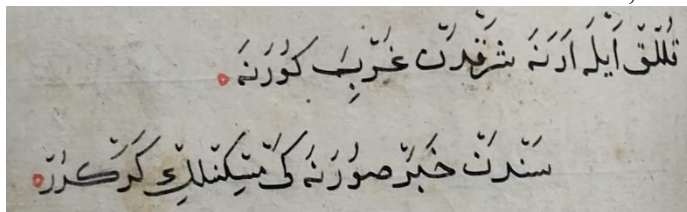 قُلّلِقْ اَيْلَه اَدَنَه شَرْقدَنْ غَرْبِ كُورَنَه
سَنْدَنْ خَبَرْ صُورَنَه كَ مِسْكِنْلِكِ كَرَكْدُرْ